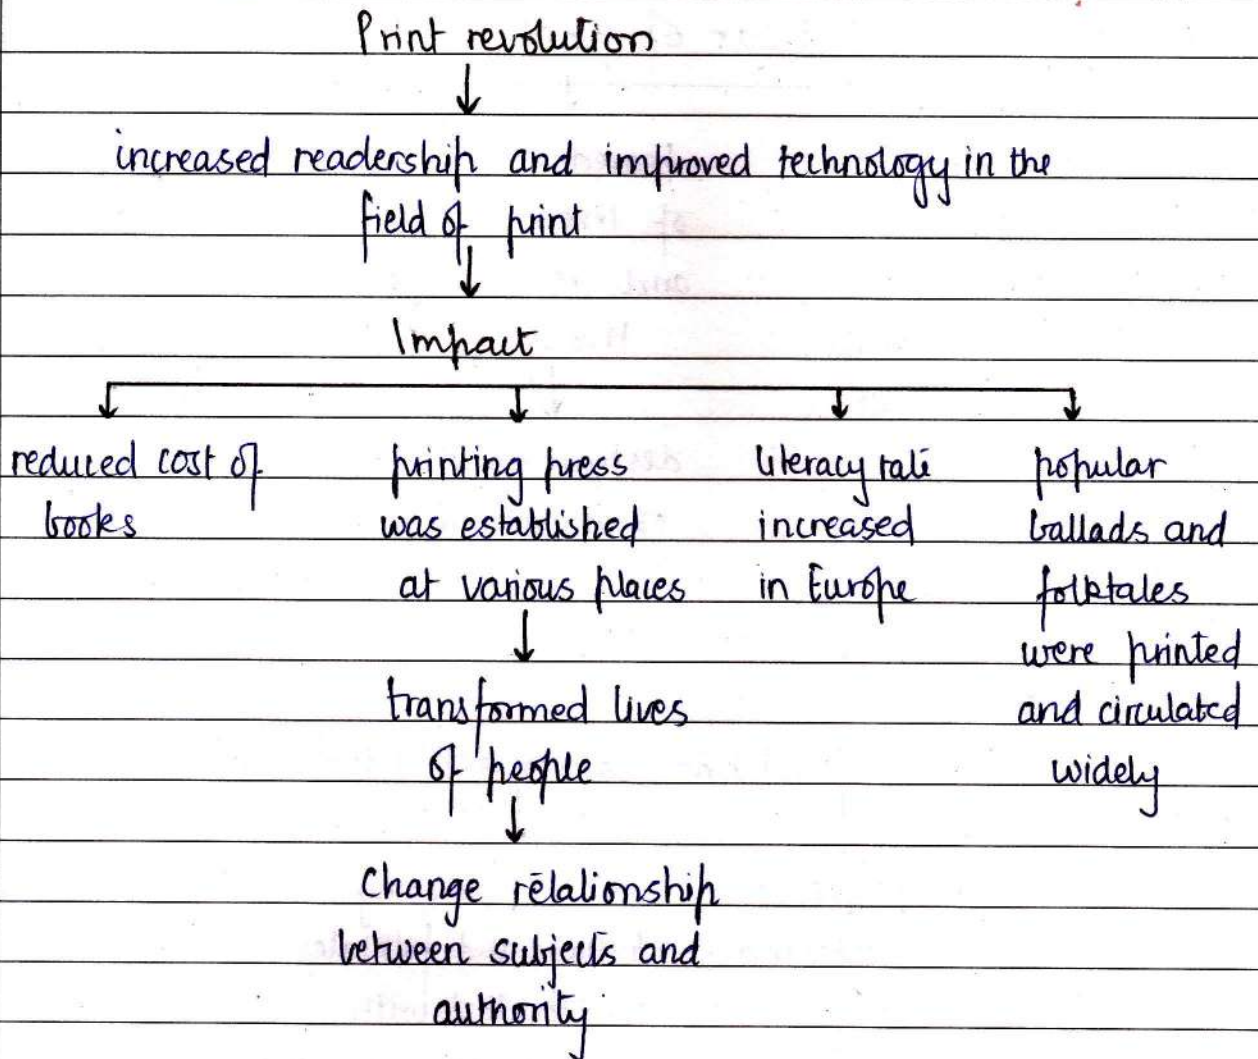 Print revolution
increased readership and improved technology in the
field of print
Impact
reduced cost of
books
printing press
was established
at various places
transformed lives
of people
Change relationship
between subjects and
authority
literacy rate
increased
in Europe
popular
ballads and
folktales
were printed
and circulated
widely